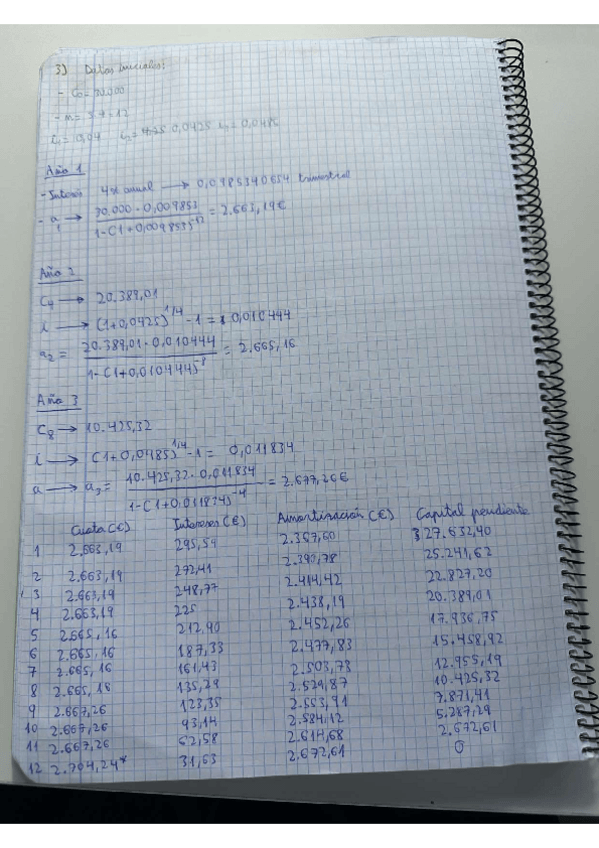 3) Datos iniciales:
- Co = 30.000
- m = 3·4 = 12
i₁ = 0,04 i₂ = 0,0425 i₃ = 0,0485
Año 1
- Interés 4% anual → 0,0985340654 trimestral
- a₁ → 30.000 · 0,009853 / 1-(1+0,009853)⁻¹² = 2.663,19€
Año 2
C₄ → 20.389,01
i → (1+0,0425)^1/4 - 1 = 0,010444
a₂ = 20.389,01 · 0,010444 / 1-(1+0,010444)⁻⁸ = 2.665,16
Año 3
C₈ → 10.425,32
i → (1+0,0485)^1/4 - 1 = 0,011834
a → a₃ = 10.425,32 · 0,011834 / 1-(1+0,011874)⁻⁴ = 2.677,26€
Cuota (€) Intereses (€) Amortización (€) Capital pendiente
1 2.663,19 295,59 2.367,60 27.632,40
2 2.663,19 272,41 2.390,78 25.241,62
3 2.663,19 248,77 2.414,42 22.827,20
4 2.663,19 225 2.438,19 20.389,01
5 2.665,16 212,90 2.452,26 17.936,75
6 2.665,16 187,33 2.477,83 15.458,92
7 2.665,16 161,43 2.503,73 12.955,19
8 2.665,16 135,29 2.529,87 10.425,32
9 2.667,26 123,35 2.553,91 7.871,41
10 2.667,26 93,14 2.584,12 5.287,29
11 2.667,26 62,58 2.614,68 2.672,61
12 2.704,24* 31,63 2.672,61 0